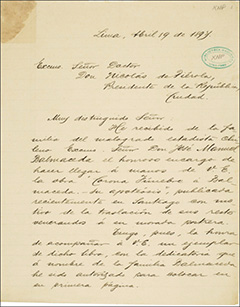 Lima, Abril 19 de 1897
Excmo. Señor Doctor
Don Nicolás de Piérola,
Presidente de la República,
Ciudad.
Muy distinguido Señor:
He recibido de la fa-
milia del malogrado estadista Chi-
leno Excmo. Señor Don José Manuel
Balmaceda el honroso encargo de
hacer llegar á manos de V. E.
la obra "Corona Fúnebre á Bal-
maceda. Su apoteosis", publicada
recientemente en Santiago con mo-
tivo de la traslación de sus restos
venerandos á su morada postrera
Tengo, pues, la honra
de acompañar á V. E. un ejemplar
de dicho libro, con la dedicatoria que
á nombre de la familia Balmaceda
he sido autorizado para colocar en
su primera página.